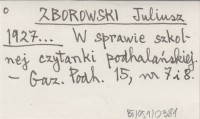 ZBOROWSKI Juliusz
1927... W sprawie szkol-
nej czytanki podhalańskiej.
— Gaz. Podh. 15, nr 7 i 8.